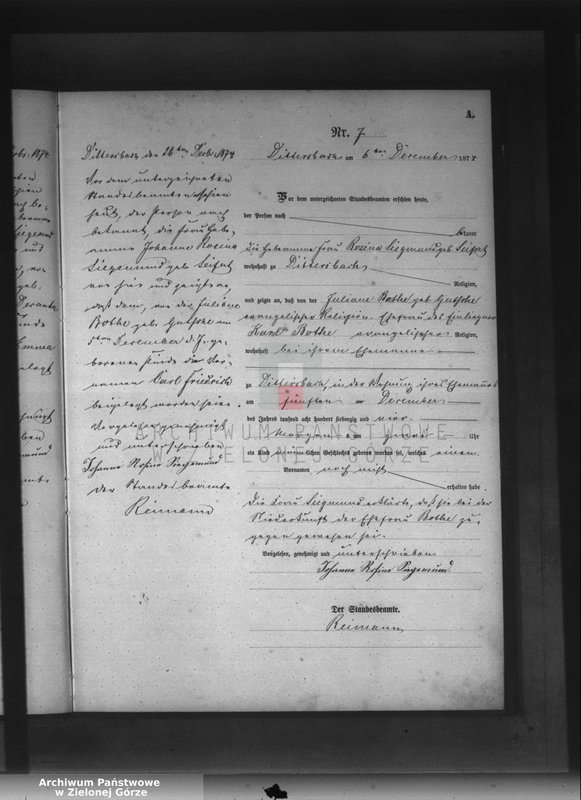 A.
Nr. 7.
Dittersbach am 6ten December 1874
Vor dem unterzeichneten Standesbeamten erschien heute,
der Person nach
bekannt
die Hebamme Frau Rosina Siegmund geb. Seifert
wohnhaft zu Dittersbach
Religion,
und zeigte an, daß von der Juliane Bothe geb. Gutsche
evangelischer Religion, Ehefrau des Einliegers
Karl Bothe evangelischer Religion,
wohnhaft bei ihrem Ehemanne
zu Dittersbach in der Wohnung ihres Ehemannes
am fünften December
des Jahres tausend acht hundert siebenzig und vier
Morgens um Uhr
ein Kind männlichen Geschlechts geboren worden sei, welches einen
Vornamen noch nicht
erhalten habe.
Die Frau Siegmund erklärte, daß sie bei der
Niederkunft der Ehefrau Bothe zu-
gegen gewesen sei.
Vorgelesen, genehmigt und unterschrieben
Johanne Rosine Siegemund.
Der Standesbeamte.
Reimann
Dittersbach den 26ten Decbr. 1874
Vor dem unterzeichneten
Standesbeamten erschien
heut, der Person nach
bekannt, die Frau Heb-
amme Johanne Rosina
Siegemund geb. Seifert
von hier und zeigte an,
daß dem, von der Juliane
Bothe geb. Gutsche am
5ten December d. J. ge-
borenen Kinde die Vor-
namen Carl Friedrich
beigelegt worden seien.
Vorgelesen genehmigt
und unterschrieben
Johanne Rosine Siegemund
Der Standesbeamte
Reimann
ARCHIWUM PAŃSTWOWE
W ZIELONEJ GÓRZE
Archiwum Państwowe
w Zielonej Górze